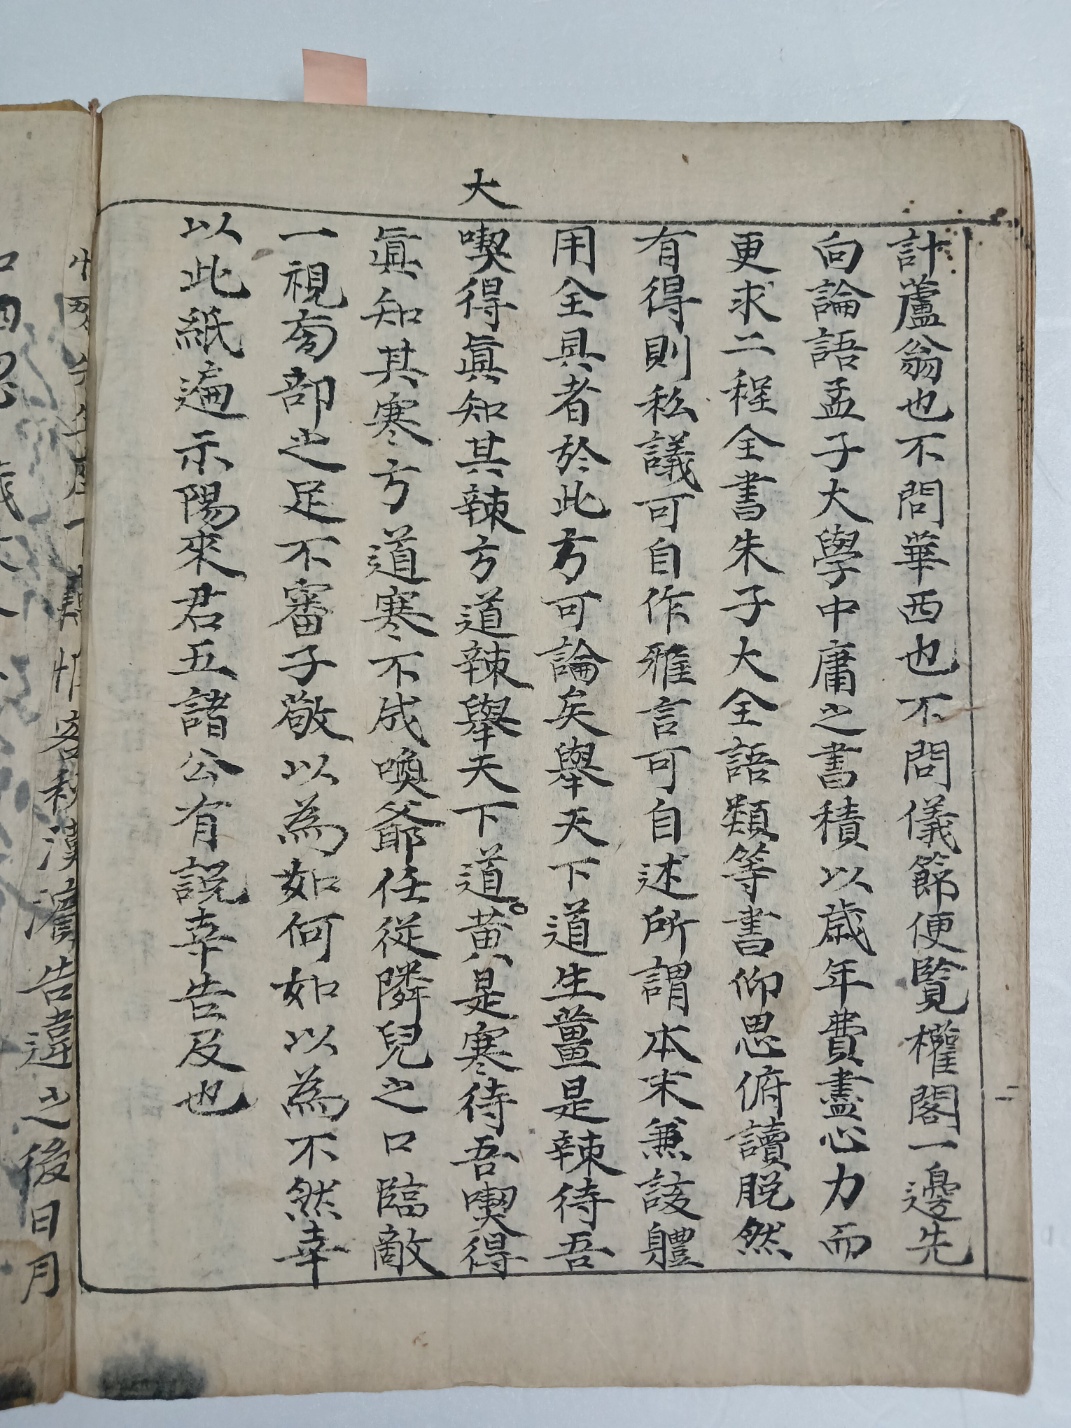 計蘆翁也不問華西也不問儀節便覧權閣一邊先
向論語孟子大學中庸之書積以歲年費盡心力而
更求二程全書朱子大全語類等書仰思俯讀脫然
有得則私議可自作雅言可自述所謂本末兼該軆
用全具者於此方可論矣舉天下道生薑是辣待吾
大
喫得眞知其辣方道辣舉天下道黄是寒待吾喫得
眞知其寒方道寒不成喚爺任從隣兒之口臨敵
一視吾部之足不審子敬以為如何如以為不然幸
以此紙遍示陽來君五諸公有説幸告及也
告違之後日月